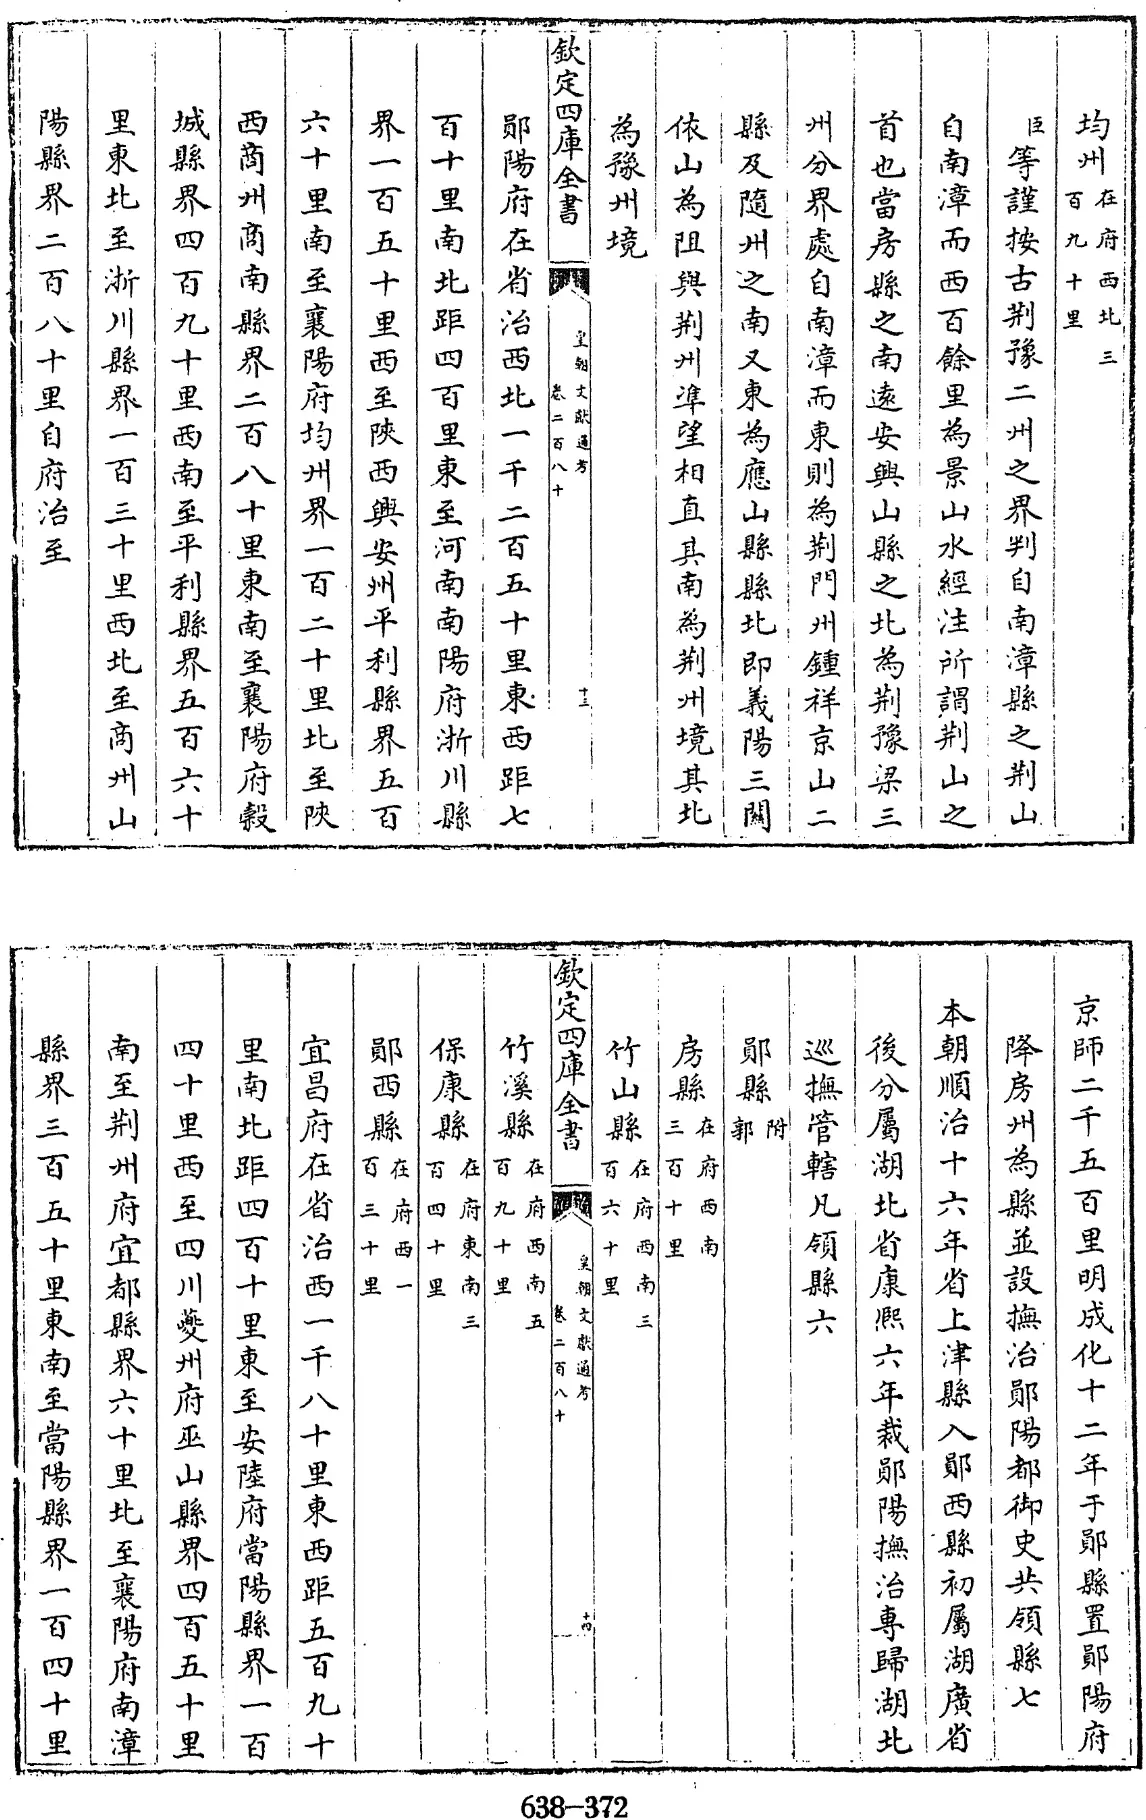 均州在府西北三百九十里
臣等謹按古荆豫二州之界判自南漳縣之荆山
自南漳而西百餘里為景山水經注所謂荆山之
首也當房縣之南遠安興山縣之北為荆豫梁三
州分界處自南漳而東則為荆門州鍾祥京山二
縣及隨州之南又東為應山縣縣北即義陽三關
依山為阻與荆州準望相直其南為荆州境其北
為豫州境
欽定四庫全書
皇朝文獻通考
卷二百八十
十三
鄖陽府在省治西北一千二百五十里東西距七
百十里南北距四百里東至河南南陽府淅川縣
界一百五十里西至陜西興安州平利縣界五百
六十里南至襄陽府均州界一百二十里北至陜
西商州商南縣界二百八十里東南至襄陽府穀
城縣界四百九十里西南至平利縣界五百六十
里東北至浙川縣界一百三十里西北至商州山
陽縣界二百八十里自府治至
京師二千五百里明成化十二年于鄖縣置鄖陽府
降房州為縣並設撫治鄖陽都御史共領縣七
本朝順治十六年省上津縣入鄖西縣初屬湖廣省
後分屬湖北省康熙六年裁鄖陽撫治專歸湖北
巡撫管轄凡領縣六
鄖縣附郭
房縣在府西南三百十里
竹山縣在府西南三百六十里
欽定四庫全書
皇朝文獻通考
卷二百八十
十四
竹溪縣在府西南五百九十里
保康縣在府東南三百四十里
鄖西縣在府西一百三十里
宜昌府在省治西一千八十里東西距五百九十
里南北距四百十里東至安陸府當陽縣界一百
四十里西至四川夔州府巫山縣界四百五十里
南至荆州府宜都縣界六十里北至襄陽府南漳
縣界三百五十里東南至當陽縣界一百四十里
638-372